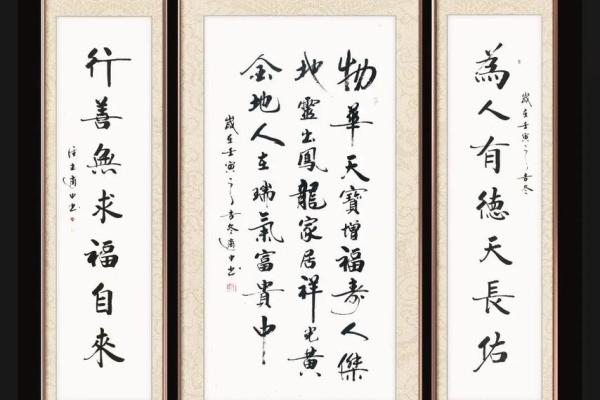 為人有德天長佑
歲在壬寅之吉冬
物華天寶增福壽人傑
地靈出鳳龍家居祥光黃
金地人在瑞氣富貴中
歲在壬寅之吉冬中書
行善無求福自來
中書